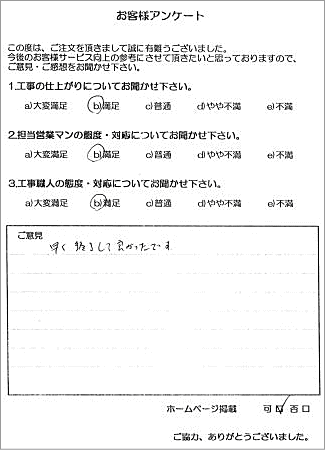 お客様アンケート
この度は、ご注文を頂きまして誠に有難うございました。
今後のお客様サービス向上の参考にさせて頂きたいと思っておりますので、
ご意見・ご感想をお聞かせ下さい。
1.工事の仕上がりについてお聞かせ下さい。
a)大変満足 b)満足 c)普通 d)やや不満 e)不満
2.担当営業マンの態度・対応についてお聞かせ下さい。
a)大変満足 b)満足 c)普通 d)やや不満 e)不満
3.工事職人の態度・対応についてお聞かせ下さい。
a)大変満足 b)満足 c)普通 d)やや不満 e)不満
ご意見
早く終了して良かったです
ホームページ掲載 可 否
ご協力、ありがとうございました。